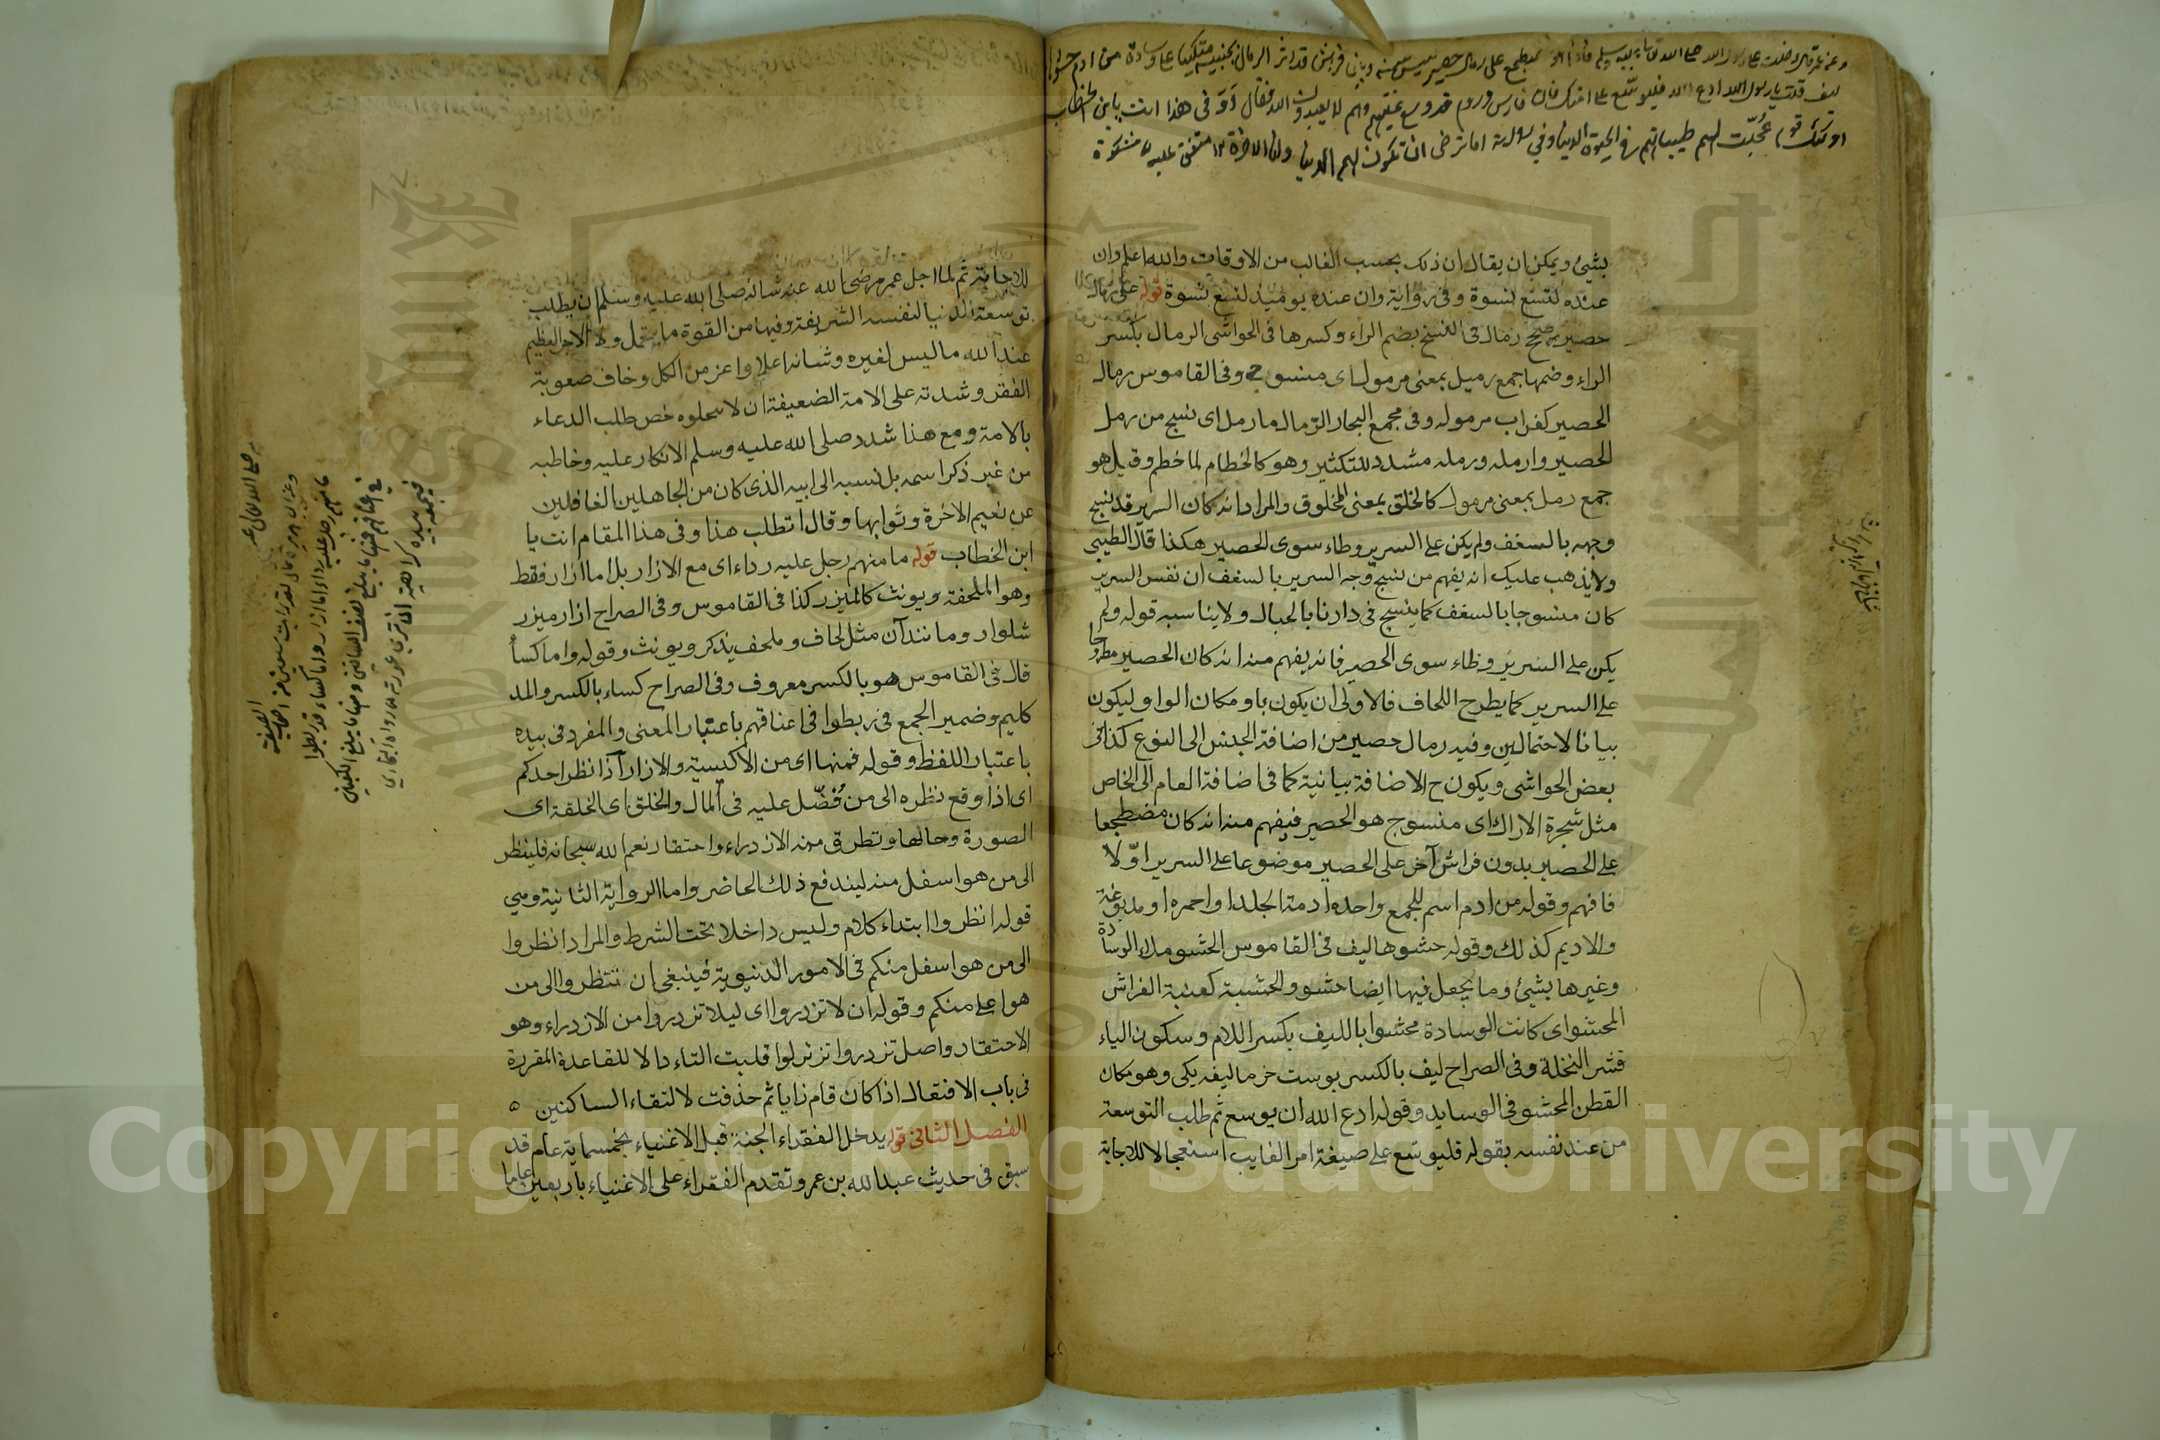 وعن عمر قال دخلت على رسول الله صلى الله عليه وسلم فاذا هو مضطجع على رمال حصير ليس بينه وبين فراش قد اثر الرمال بجنبه متكئا على وسادة من ادم حشوها
ليف قلت يا رسول الله ادع الله فليوسع على امتك فان فارس وروم قد وسع عليهم وهم لا يعبدون الله فقال أوَ في هذا انت يابن الخطاب
اولئك قوم عُجّلت لهم طيباتهم في الحيوة الدنيا وفي رواية اما ترضى ان تكون لهم الدنيا ولنا الاخرة متفق عليه مشكوة
بشئ ويمكن ان يقال ان ذلك بحسب الغالب من الاوقات والله اعلم وان
عنده لتسع نسوة وفي رواية وان عنده يوميذ لتسع نسوة قوله على رمال
حصير صحح رمال في النسخ بضم الراء وكسرها في الحواشي الرمال بكسر
الراء وضمها جمع رميل بمعنى مرمول اى منسوج وفي القاموس رمال
الحصير كغراب مرموله وفي مجمع البحار الرمال ما رمل اى نسج من رمل
الحصير وارمله ورمله مشدد للتكثير وهو كالخطام لما خطم وقيل هو
جمع رمل بمعنى مرمول كالخلق بمعنى المخلوق والمراد انه كان السرير قد نسج
وجهه بالسعف ولم يكن على السرير وطاء سوى الحصير هكذا قال الطيبي
ولا يذهب عليك انه يفهم من نسج وجه السرير بالسعف ان نفس السرير
كان منسوجا بالسعف كما ينسج في دارنا بالحبال ولا يناسبه قوله ولم
يكن على السرير وطاء سوى الحصير فانه يفهم منه انه كان الحصير مطروحا
على السرير كما يطرح اللحاف فالاولى ان يكون باو مكان الواو ليكون
بيانا لاحتمالين وفيه رمال حصير من اضافة الجنس الى النوع كذا في
بعض الحواشي ويكون ح الاضافة بيانية كما في اضافة العام الى الخاص
مثل شجرة الاراك اى منسوج هو الحصير فيفهم منه انه كان مضطجعا
على الحصير بدون فراش آخر على الحصير موضوعا على السرير اوّلا
فافهم وقوله من ادم اسم للجمع واحده ادمة الجلد او احمره او مدبوغة
والاديم كذلك وقوله حشوها ليف في القاموس الحشو ملء الوسادة
وغيرها بشئ وما يجعل فيها ايضا حشو والحشية كغنية الفراش
المحشو اى كانت الوسادة محشوا بالليف بكسر اللام وسكون الياء
قشر النخلة وفي الصراح ليف بالكسر پوست خرما ليفه يكى وهو مكان
القطن المحشو في الوسايد وقوله ادع الله ان يوسع ثم طلب التوسعة
من عند نفسه بقوله فليوسع على صيغة امر الغايب استعجالا للاجابة
للاجابة ثم لما اجل عمر رضى الله عنه شانه صلى الله عليه وسلم ان يطلب
توسعة الدنيا لنفسه الشريفة وفيها من القوة ما يتحمل وله الاجر العظيم
عند الله ما ليس لغيره وشانه اعلا واعز من الكل وخاف صعوبة
الفقر وشدته على الامة الضعيفة ان لا يتحلوه خص طلب الدعاء
بالامة ومع هذا شدد صلى الله عليه وسلم الانكار عليه وخاطبه
من غير ذكر اسمه بل نسبه الى ابيه الذى كان من الجاهلين الغافلين
عن نعيم الاخرة وثوابها وقال اتطلب هذا وفي هذا المقام انت يا
ابن الخطاب قوله ما منهم رجل عليه رداء اى مع الازار بل اما ازار فقط
وهو الملحفة ويونث كالميزر كذا في القاموس وفي الصراح ازار ميزر
شلوار ومانند آن مثل لحاف وملحف يذكر ويونث وقوله واما كساء
قال في القاموس هو بالكسر معروف وفي الصراح كساء بالكسر والمد
كليم وضمير الجمع في ربطوا في اعناقهم باعتبار المعنى والمفرد في بيده
باعتبار اللفظ وقوله فمنها اى من الاكيسية والازار اذا نظر احدكم
اى اذا وقع نظره الى من فُضّل عليه في المال والخلق اى الخلقة اى
الصورة وحالها وتطرق منه الازدراء واحتقار نعم الله سبحانه فلينظر
الى من هو اسفل منه ليندفع ذلك الحاضر واما الرواية الثانية وهي
قوله انظروا ابتداء كلام وليس داخلا تحت الشرط والمراد انظروا
الى من هو اسفل منكم في الامور الدنيوية فينبغي ان تنتظروا الى من
هو اعلى منكم وقوله ان لا تزدروا اى ليلا تزدروا من الازدراء وهو
الاحتقار واصل تزدروا تزتريوا قلبت التاء دالا للقاعدة المقررة
في باب الافتعال اذا كان فاءه زايا ثم حذفت لالتقاء الساكنين ٥
الفصل الثاني قوله يدخل الفقراء الجنة قبل الاغنياء بخمسماية عام قد
سبق في حديث عبد الله بن عمرو تقدم الفقراء على الاغنياء باربعين عاما
وعن ابي هريرة قال لقد رايت سبعين من اصحاب الصفة
ما منهم رجل عليه رداء اما ازار واما كساء قد ربطوا
في اعناقهم فمنها ما يبلغ نصف الساقين ومنها ما يبلغ الكعبين
فيجمعه بيده كراهية ان ترى عورته رواه البخاري
Copyright © King Saud University